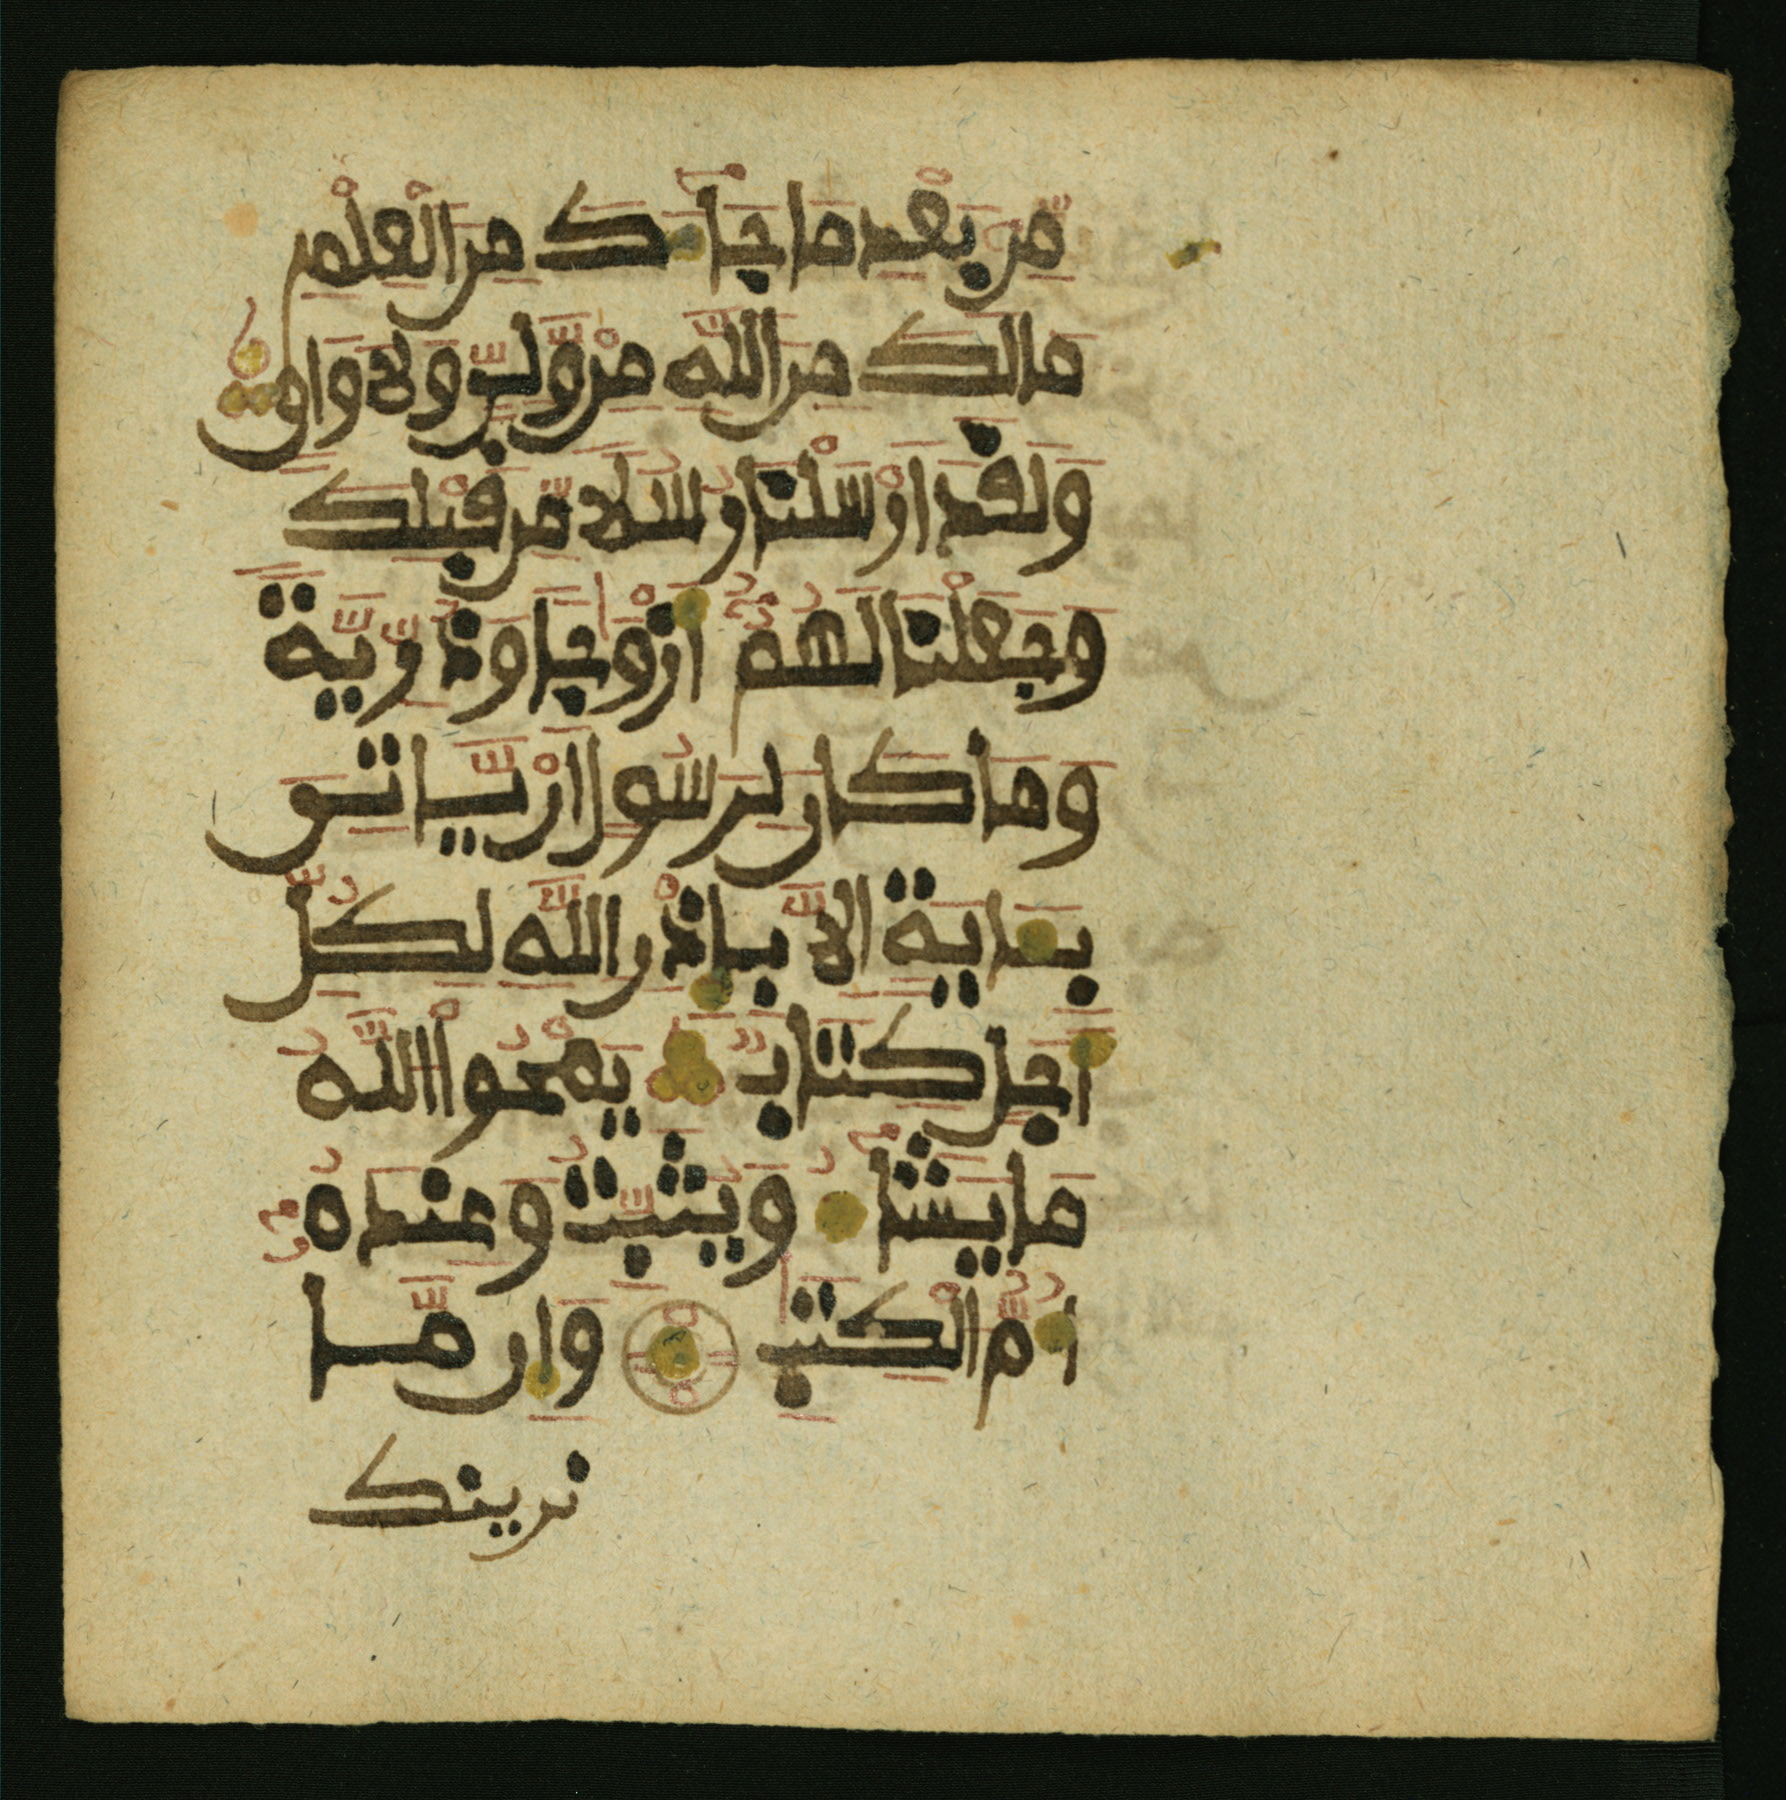 مِّنۢ بَعْدِ مَا جَآءَكَ مِنَ الْعِلْمِ
مَالَكَ مِنَ اللَّهِ مِنْ وَّلِيٍّ وَلَا وَاقٍ
وَلَقَدَ اَرْسَلْنَا رُسُلًا مِّن قَبْلِكَ
وَجَعَلْنَا لَهُمُۥٓ أَزْوَٰجًا وَذُرِّيَّةً
وَمَا كَانَ لِرَسُولٍ اَنْ يَّاتِىَ
بِـَٔايَةٍ اِلَّا بِإِذْنِ اللَّهِ لِكُلِّ
أَجَلٍ كِتَابٌ يَمْحُواْ اللَّهُ
مَا يَشَآءُ وَيُثَبِّتُ وَعِندَهُۥٓ
أُمُّ الْكِتَٰبِ وَإِن مَّا
نرينك